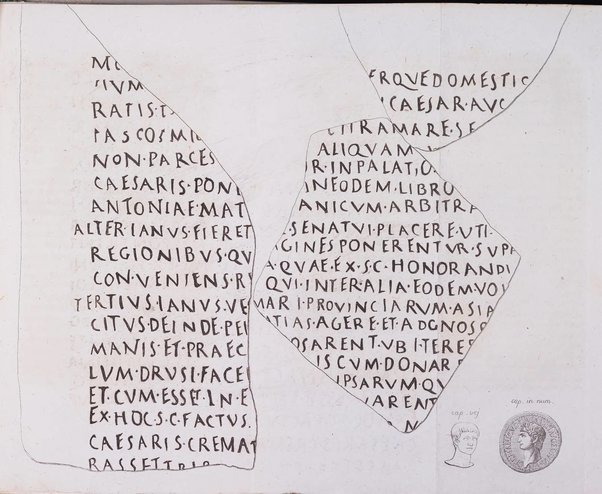 SIVM
RATIS·
NON·PARCES
CAESARIS·PONI
ANTONIAE·MAT
ALTER·IANVS·FIERET
REGIONIBVS·QV
CONVENIENS·R
TERTIVS·IANVS·VE
CITVS·DEINDE·PE
MANIS·ET·PRAEC
LVM·DRVSI·FACE
ET·CVM·ESSET·IN·E
EX·HOC·S·C·FACTVS·
CAESARIS·CREMAT
ERQVE DOMESTIC
CAESAR·AVG
ALIQVAM
R·IN PALATIO·
IN EODEM·LIBRO
ANICVM·ARBITRA
·SENATVI·PLACERE·VTI·
GINES PONERENTVR·SVPA
A·QVAE·EX·S·C·HONORANDI
QVI·INTER·ALIA·EODEM·VO
MARI·PROVINCIARVM·ASIA
TIAS·AGERE·ET·ADGNOS
OSARENT·VBI·TERE
IS CVM·DONAR
IPSARVM·QV
ARENT
cap. in num.